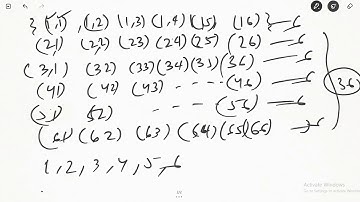 { (1,1), (1,2) (1,3) (1,4) (15) (16) — 6
(2,1) (2,2) (23) (24) (25) (26) — 6
(3,1) (32) (33) (34) (35) (36) — 6
(41) (42) (43) - - - - (46) — 6
(51) 52) - - - - (56) — 6
(61) (62) (63) (64) (65) (66) — 6
(36)
1, 2, 3, 4, 5, 6
Activate Windows
Go to Settings to activate Windows.